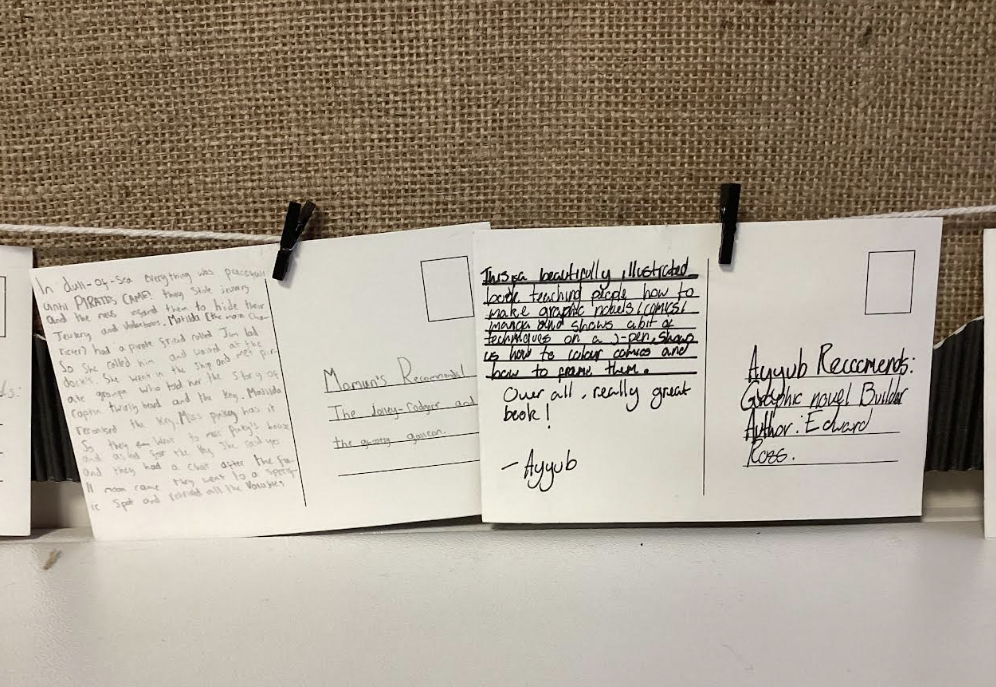 In dull-on-sea everything was peacefull
until PIRATES CAME! they stole
and the mess them to hide their
and valuables. Matilda (the main cha-
racter) had a pirate friend named Jim lad
So she called him and waited at the
docks. She went in the ship and met pir-
ate groups who told her the story of
captin twirly beard and the key. Matilda
the key. Miss pinky has it
So they went to miss pinky's house
and asked for the key she said yes
and they had a chat after the fu-
ll moon came they went to a specif-
ic spot and all the
Mamun's
The Jolley-Rodger and
the galleon.
This is a beautifully illustrated
book teaching people how to
make graphic novels/comics/
manga and shows a bit of
techniques on a J-pen, shows
us how to colour comics and
how to frame them.
Over all, really great
book!
– Ayyub
Ayyub Reccomends:
Graphic novel Builder
Author: Edward
Ross.
s: